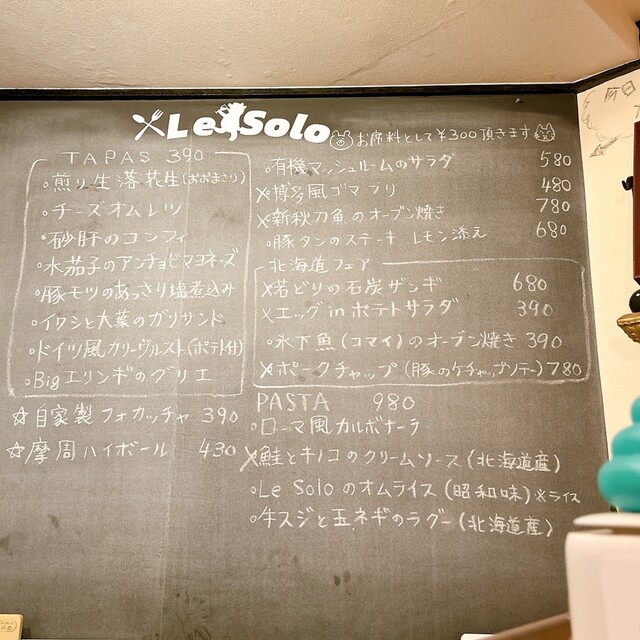 Le Solo
お席料として¥300頂きます
TAPAS 390
。煎り生落花生(おおまさり)
。チーズオムレツ
。砂肝のコンフィ
。水茄子のアンチョビマヨネーズ
。豚モツのあっさり塩煮込み
。イワシと大葉のガリサンド
。ドイツ風カリーヴルスト(ポテト付)
。Bigエリンギのグリエ
☆自家製フォカッチャ 390
☆摩周ハイボール 430
。有機マッシュルームのサラダ 580
×博多風ゴマブリ 480
×新秋刀魚のオーブン焼き 780
。豚タンのステーキ レモン添え 680
北海道フェア
×若どりの石炭ザンギ 680
×エッグinポテトサラダ 390
。氷下魚(コマイ)のオーブン焼き 390
×ポークチャップ(豚のケチャップソテー) 780
PASTA 980
。ローマ風カルボナーラ
×鮭とキノコのクリームソース(北海道産)
。Le Soloのオムライス(昭和味)※ライス
。牛スジと玉ネギのラグー(北海道産)
今日